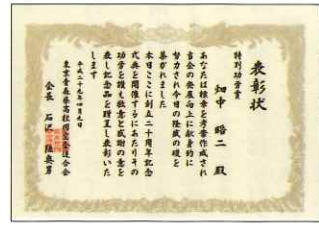 表彰状
特別功労賞
畑中 昭二 殿
あなたは穂を考案作成され
会の発展向上に献身的に
努力され今日の隆盛の礎を
築かれました
本日ここに創立二十周年記念
式典を開催するにあたりその
功労を讃え敬意と感謝の意を
表し記念品を贈呈し表彰いた
します
平成二十九年四月九日
東京青森県高校同窓会連合会
会長 石沢